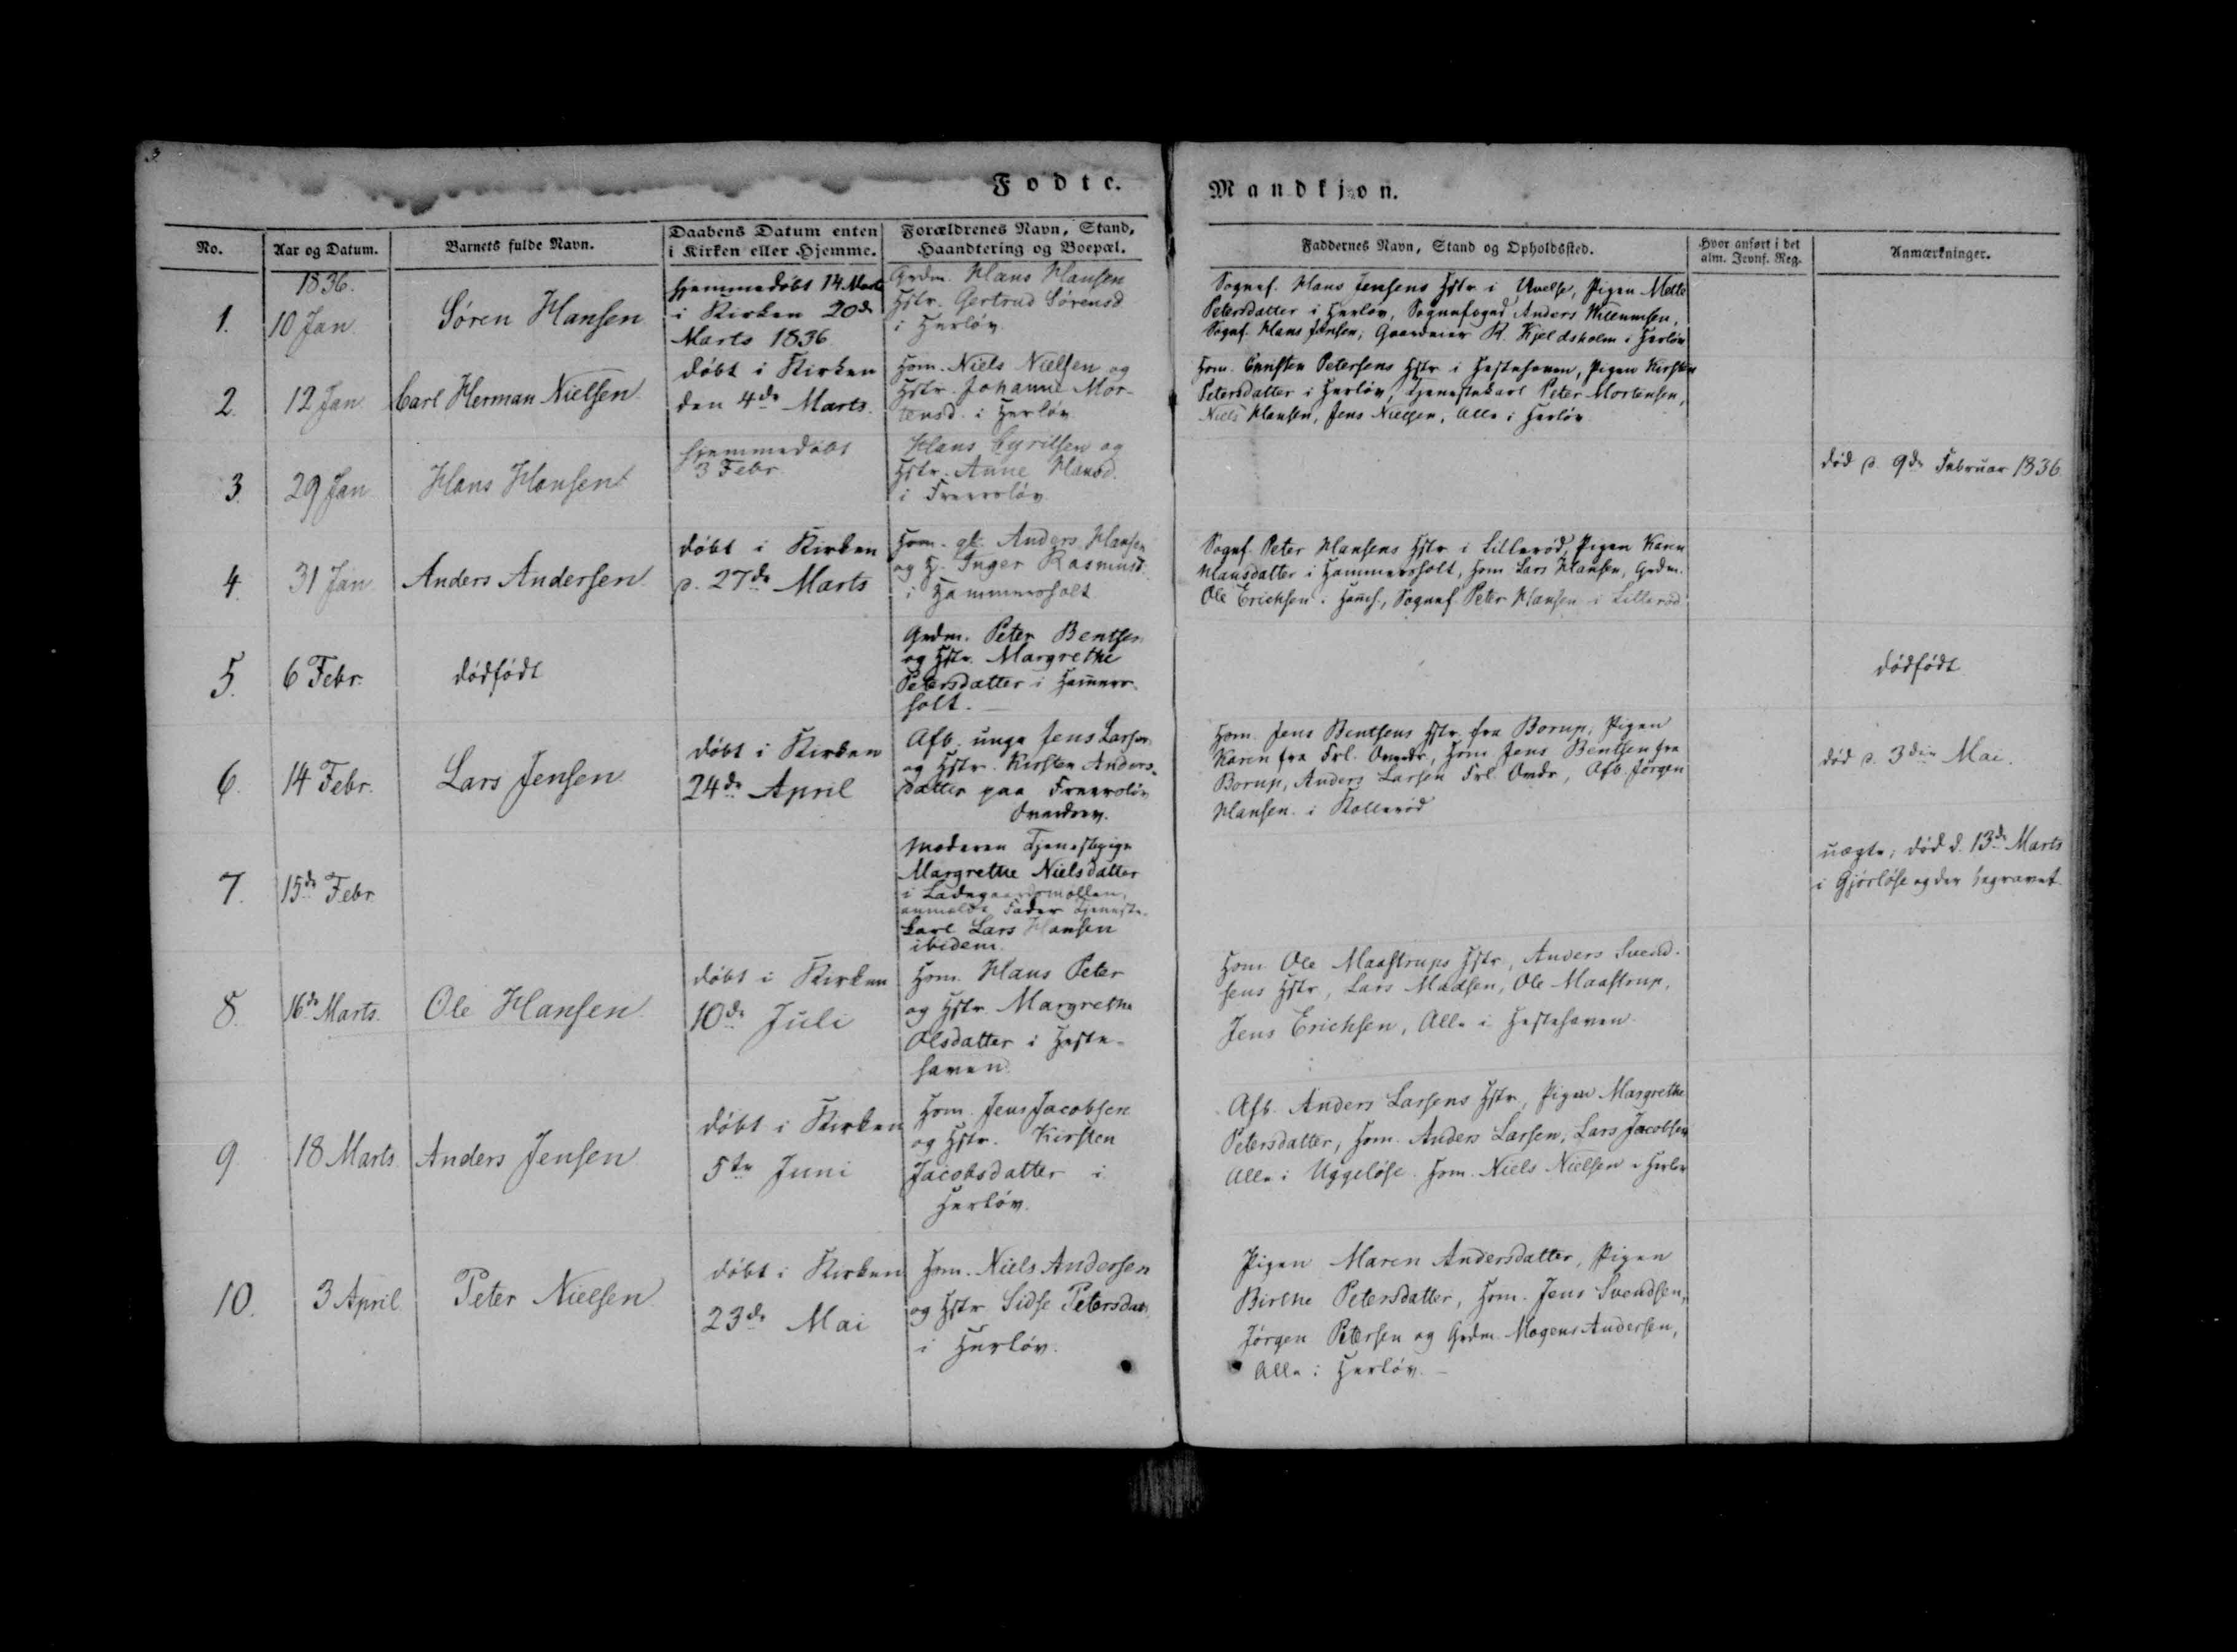 3
Fodte.
Mandkjøn.
No.
Aar og Datum.
Barnets fulde Navn.
Daabens Datum enten
i Kirken eller Hjemme.
Forældrenes Navn, Stand,
Haandtering og Boepæl.
Faddernes Navn, Stand og Opholdssted.
Hvor anført i det
alm. Jevnf. Reg.
Anmærkninger.
1836.
1.
10 Jan
Søren Hansen
hjemmedøbt 14 Marts
i Kirken 20de
Marts 1836
Grdm. Hans Hansen
Hstr. Gertrud Sørensd.
i Herløv
Sognef. Hans Jensens Hstr i Uvelse, Pigen Mette
Petersdatter i Herløv, Sognefoged Anders Willumsen,
Sognf. Hans Jensen, Gaardeier R. Kjeldsholm i Herløv
2.
12 Jan
Carl Herman Nielsen
døbt i Kirken
den 4de Marts.
Hom. Niels Nielsen og
Hstr. Johanne Mor-
tensd. i Herløv
Hom. Christen Petersens Hstr i Hestehaven, Pigen Kirsten
Petersdatter i Herløv, Tjenestekarl Peter Mortensen,
Niels Hansen, Jens Nielsen, Alle i Herløv
3.
29 Jan
Hans Hansen
hjemmedøbt
3 Febr.
Hans Cyrilsen og
Hstr. Anne Hansd.
i Freersløv
død d. 9de Februar 1836
4.
31 Jan
Anders Andersen
døbt i Kirken
d. 27de Marts
Hom. gl. Anders Hansen
og H. Inger Rasmusd.
i Hammersholt
Sognf. Peter Hansens Hstr i Lillerød, Pigen Karen
Hansdatter i Hammersholt, Hom Lars Hansen, Grdm.
Ole Erichsen i Hamh., Sognef. Peter Hansen i Lillerød
5.
6 Febr.
dødfødt
Grdm. Peter Bentsen
og Hstr. Margrethe
Petersdatter i Hamers-
holt.
dødfødt
6.
14 Febr.
Lars Jensen
døbt i Kirken
24de April
Afb. unge Jens Larsen
og Hstr. Kirsten Anders-
datter paa Freersløv
Overdrev.
Hom. Jens Bentsens Hstr. fra Borup, Pigen
Karen fra Frl. Overdr, Hom Jens Bentsen fra
Borup, Anders Larsen Frl. Ovdr, Afb. Jørgen
Hansen i Kollerød
død d. 3die Mai.
7.
15de Febr
Moderen Tjenestepige
Margrethe Nielsdatter
i Ladegaardsmøllen,
anmeldt Fader Tjeneste-
karl Lars Hansen
ibidem.
uægte; død d. 13de Marts
i Gjørløse og der begravet.
8.
16de Marts.
Ole Hansen
døbt i Kirken
10de Juli
Hom. Hans Peter
og Hstr. Margrethe
Olsdatter i Heste-
haven
Hom Ole Maastrups Hstr, Anders Svend-
sens Hstr, Lars Madsen, Ole Maastrup,
Jens Erichsen, Alle i Hestehaven
9
18 Marts
Anders Jensen
døbt i Kirken
5te Juni
Hom. Jens Jacobsen
og Hstr. Kirsten
Jacobsdatter i
Herløv.
Afb. Anders Larsens Hstr, Pigen Margrethe
Petersdatter, Hom. Anders Larsen, Lars Jacobsen
Alle i Uggeløse. Hom. Niels Nielsen i Herløv
10.
3 April
Peter Nielsen
døbt i Kirken
23de Mai
Hom. Niels Andersen
og Hstr Sidse Petersdatt
i Herløv.
Pigen Maren Andersdatter, Pigen
Birthe Petersdatter, Hom. Jens Svendsen,
Jørgen Petersen og Grdm. Mogens Andersen,
Alle i Herløv. –